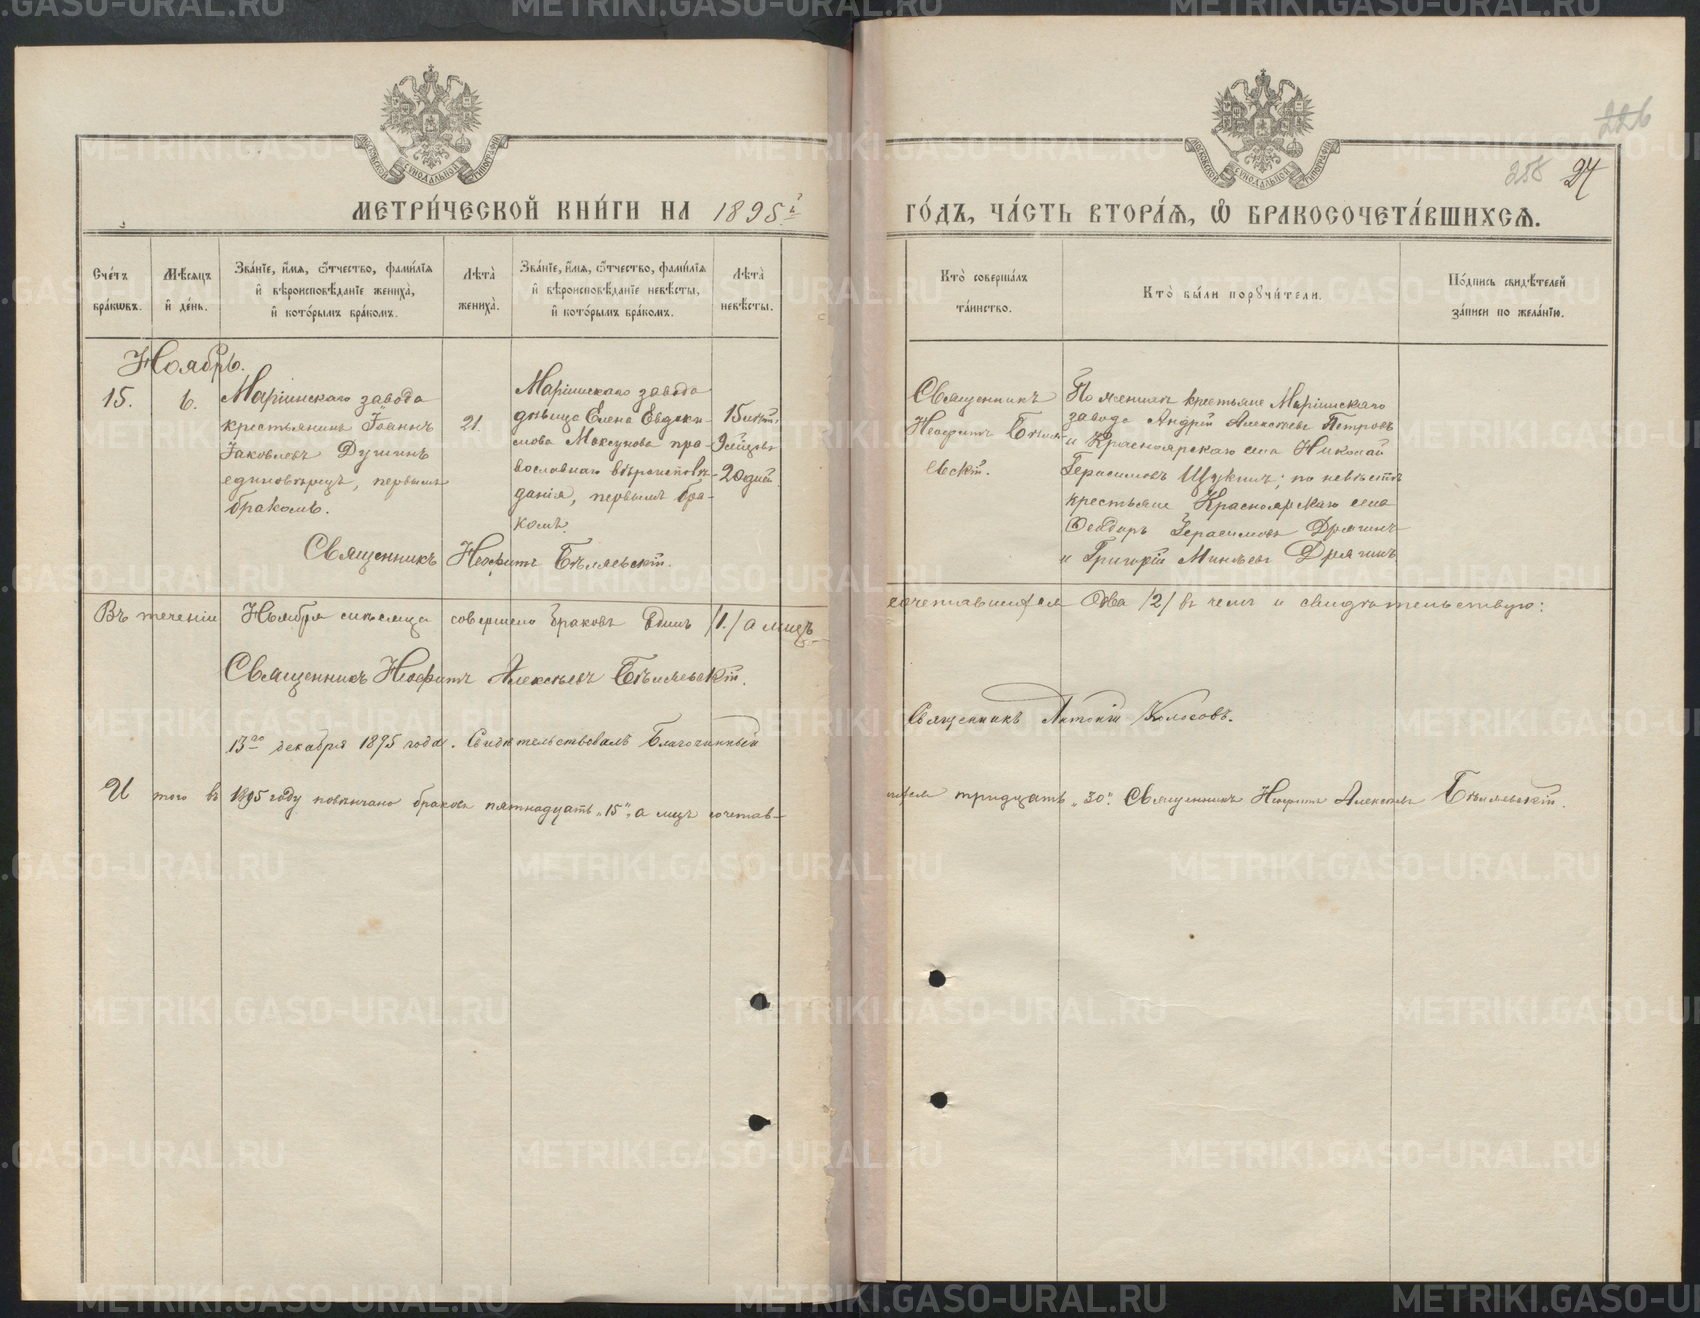 МЕТРИ́ЧЕСКОЙ КНИ́ГИ НА 1895 й
ГО́ДЪ, ЧА́СТЬ ВТОРА́Я, Ѡ БРАКОСОЧЕТА́ВШИХСЯ.
226
258 27
МОСКОВСКОЙ СѴНОДАЛЬНОЙ ТИПОГРАФІИ
МОСКОВСКОЙ СѴНОДАЛЬНОЙ ТИПОГРАФІИ
Сче́тъ бра́кѡвъ.
Мѣ́сяцъ и҆ де́нь.
Зва́нїе, и҆́мя, ѻ҆́тчество, фами́лїя и҆ вѣроисповѣ́данїе жениха̀, и҆ кото́рымъ бра́комъ.
Лѣ́та жениха̀.
Зва́нїе, и҆́мя, ѻ҆́тчество, фами́лїя и҆ вѣроисповѣ́данїе невѣ́сты, и҆ кото́рымъ бра́комъ.
Лѣ́та невѣ́сты.
Кто̀ соверша́лъ та́инство.
Кто̀ бы́ли порꙋчи́тели.
По́дпись свидѣ́телей за́писи по жела́нїю.
Ноябрь.
15.
6.
Маріинскаго завода
крестьянинъ Іоаннъ
Іаковлевъ Душинъ
единовѣрецъ, первымъ
бракомъ.
21.
Маріинскаго завода
дѣвица Елена Евдоки-
мова Моксунова пра-
вославнаго вѣроисповѣ-
данія, первымъ бра-
комъ.
15 лѣтъ,
9 мѣсяцевъ
20 дней
Священникъ
Неофитъ Бѣля-
евскій.
По женихѣ крестьяне Маріинскаго
завода Андрей Алексѣевъ Петровъ
и Красноярскаго села Николай
Герасимовъ Щукинъ; по невѣстѣ
крестьяне Красноярскаго села
Ѳеодоръ Герасимовъ Дрягинъ
и Григорій Минѣевъ Дрягинъ
Священникъ Неофитъ Бѣляевскій.
Въ теченіи Ноября мѣсяца совершено браковъ Одинъ /1./ а лицъ
сочетавшихся Два /2/ въ чемъ и свидѣтельствую:
Священникъ Неофитъ Алексѣевъ Бѣляевскій.
13го декабря 1895 года. Свидѣтельствовалъ Благочинный
Священникъ Антоній Колосовъ.
Итого въ 1895 году повѣнчано браковъ пятнадцать „15", а лицъ сочетав-
шихся тридцать „30". Священникъ Неофитъ Алексѣевъ Бѣляевскій.
METRIKI.GASO-URAL.RU